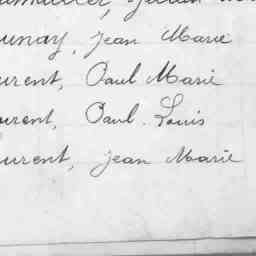 unay, Jean Marie
urent, Paul Marie
urent, Paul. Louis
urent, Jean Marie